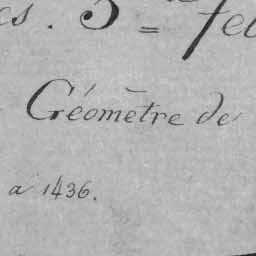 es. 3 = feu
Géomètre de
a 1436.